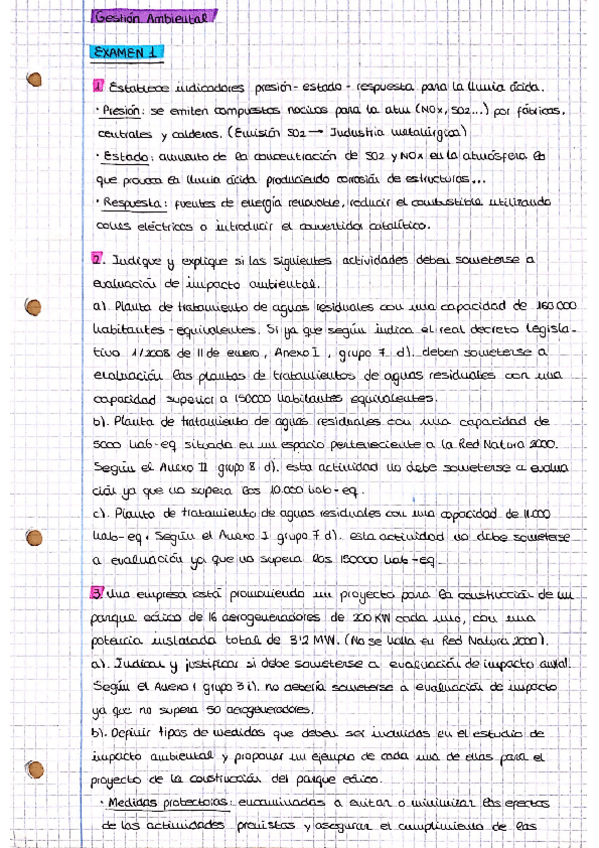 Gestión Ambiental
EXAMEN 1
1. Establece indicadores presión-estado-respuesta para la lluvia ácida.
· Presión: se emiten compuestos nocivos para la atm (NOx, SO2...) por fábricas,
centrales y calderas. (Emisión SO2 → Industria metalúrgica)
· Estado: aumento de la concentración de SO2 y NOx en la atmósfera lo
que provoca la lluvia ácida produciendo corrosión de estructuras...
· Respuesta: fuentes de energía renovable, reducir el combustible utilizando
coches eléctricos o introducir el convertidor catalítico.
2. Indique y explique si las siguientes actividades deben someterse a
evaluación de impacto ambiental.
a). Planta de tratamiento de aguas residuales con una capacidad de 160000
habitantes-equivalentes. Si ya que según indica el real decreto legisla-
tivo 1/2008 de 11 de enero, Anexo I, grupo 7 d). deben someterse a
evaluación las plantas de tratamientos de aguas residuales con una
capacidad superior a 150000 habitantes equivalentes.
b). Planta de tratamiento de aguas residuales con una capacidad de
5000 hab-eq situada en un espacio perteneciente a la Red Natura 2000.
Según el Anexo II grupo 8 d). esta actividad no debe someterse a evalua
ción ya que no supera los 10.000 hab-eq.
c). Planta de tratamiento de aguas residuales con una capacidad de 11.000
hab-eq. Según el Anexo I grupo 7 d). esta actividad no debe someterse
a evaluación ya que no supera los 150000 hab-eq.
3. Una empresa está promoviendo un proyecto para la construcción de un
parque eólico de 16 aerogeneradores de 200KW cada uno, con una
potencia instalada total de 3'2 MW. (No se halla en Red Natura 2000).
a). Indicar y justificar si debe someterse a evaluación de impacto
Según el Anexo I grupo 3 i). no debería someterse a evaluación de impacto
ya que no supera 50 aerogeneradores.
b). Definir tipos de medidas que deben ser incluidas en el estudio de
impacto ambiental y proponer un ejemplo de cada una de ellas para el
proyecto de la construcción del parque eólico.
· Medidas protectoras: encaminadas a evitar o minimizar los efectos
de las actividades previstas y asegurar el cumplimiento de las